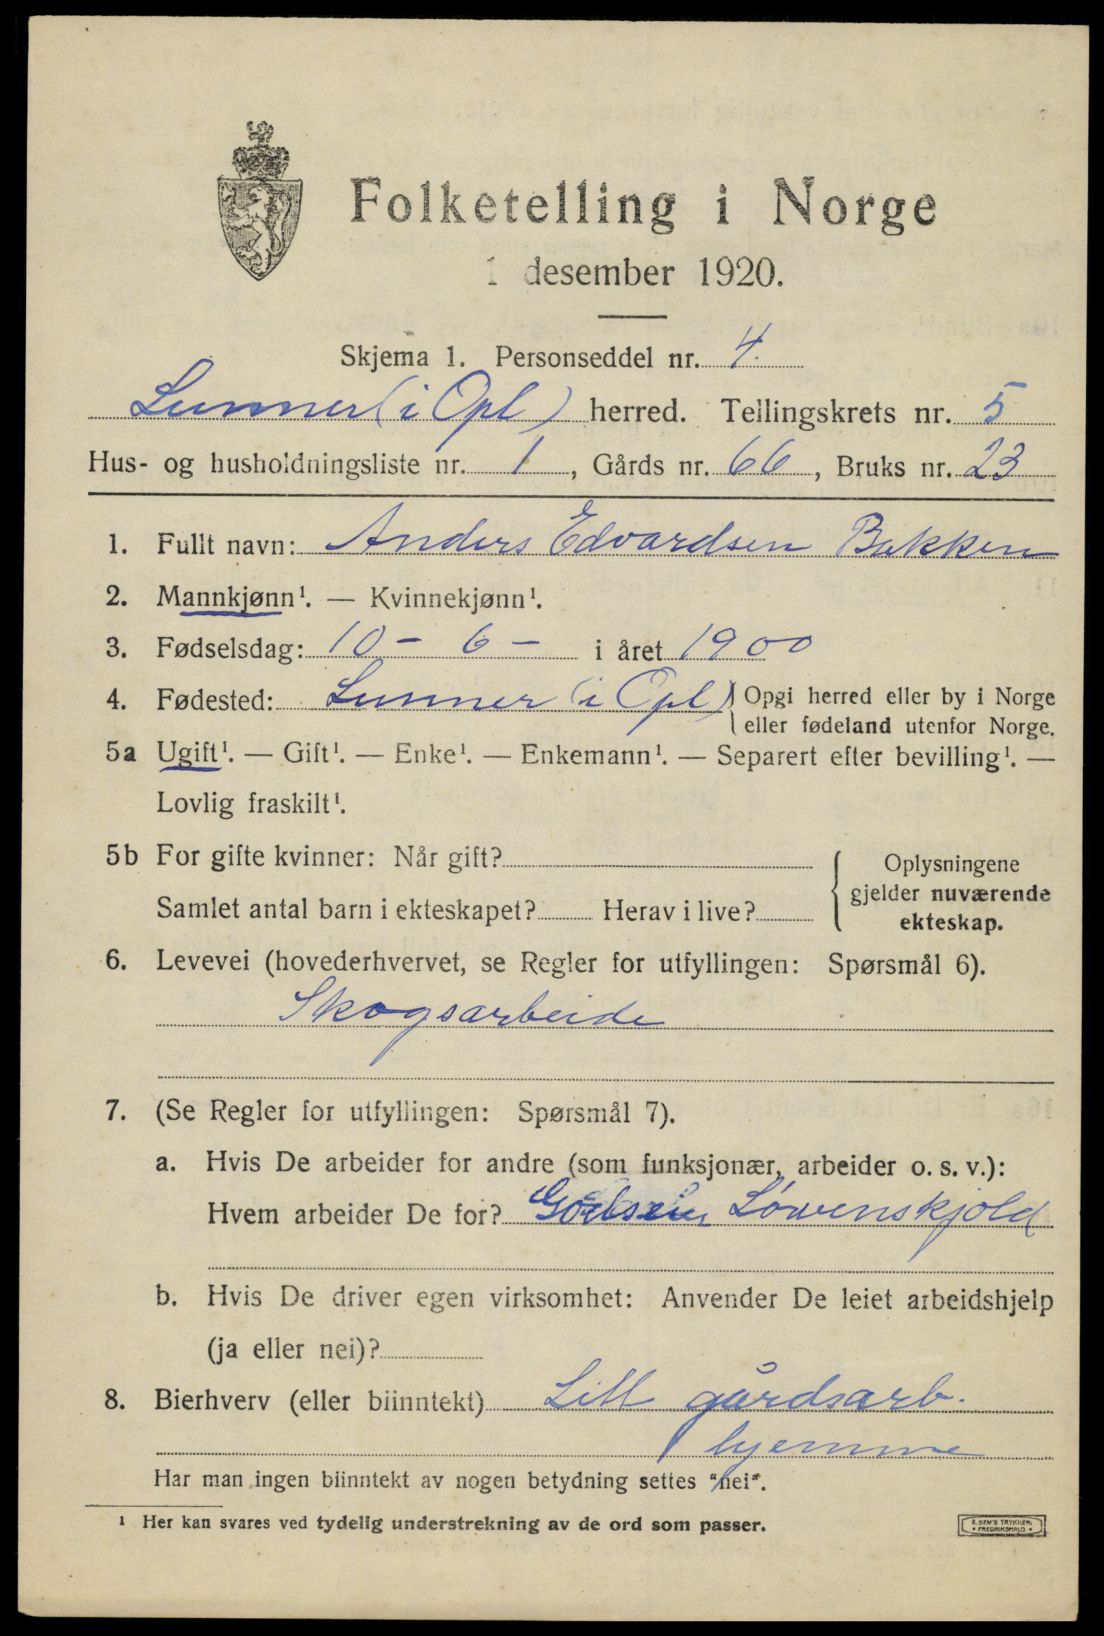 Folketelling i Norge
1 desember 1920.
Skjema 1. Personseddel nr. 4.
Lunner (i Opl) herred. Tellingskrets nr. 5
Hus- og husholdningsliste nr. 1, Gårds nr. 66, Bruks nr. 23
1. Fullt navn: Anders Edvardsen Bakken
2. Mannkjønn¹. — Kvinnekjønn¹.
3. Fødselsdag: 10 – 6 – i året 1900
4. Fødested: Lunner (i Opl) Opgi herred eller by i Norge
eller fødeland utenfor Norge.
5a Ugift¹. — Gift¹. — Enke¹. — Enkemann¹. — Separert efter bevilling¹. —
Lovlig fraskilt¹.
5b For gifte kvinner: Når gift?
Samlet antal barn i ekteskapet? Herav i live?
Oplysningene
gjelder nuværende
ekteskap.
6. Levevei (hovederhvervet, se Regler for utfyllingen: Spørsmål 6).
Skogsarbeide
7. (Se Regler for utfyllingen: Spørsmål 7).
a. Hvis De arbeider for andre (som funksjonær, arbeider o. s. v.):
Hvem arbeider De for? Godseier Løwenskjold
b. Hvis De driver egen virksomhet: Anvender De leiet arbeidshjelp
(ja eller nei)?
8. Bierhverv (eller biinntekt) Litt gårdsarb.
hjemme
Har man ingen biinntekt av nogen betydning settes "nei".
¹ Her kan svares ved tydelig understrekning av de ord som passer.